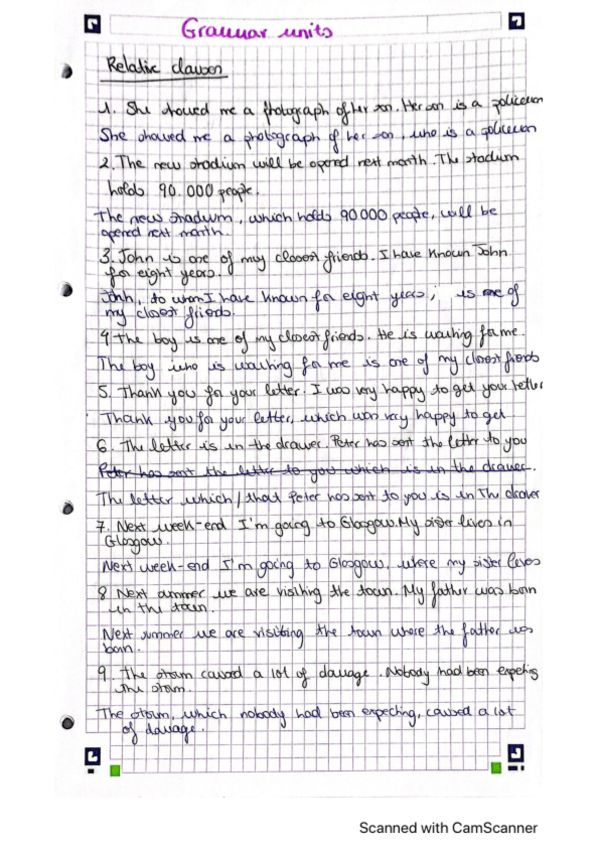 Grammar units
Relative clauses
1. She showed me a photograph of her son. Her son is a policeman
She showed me a photograph of her son, who is a policeman
2. The new stadium will be opened next month. The stadium
holds 90.000 people.
The new stadium, which holds 90000 people, will be
opened next month.
3. John is one of my closest friends. I have known John
for eight years.
John, to whom I have known for eight years, is one of
my closest friends.
4 The boy is one of my closest friends. He is waiting for me.
The boy who is waiting for me is one of my closest friends
5. Thank you for your letter. I was very happy to get your letter
Thank you for your letter, which was very happy to get.
6. The letter is in the drawer. Peter has sent the letter to you
Peter has sent the letter to you which is in the drawer.
The letter which / that Peter has sent to you is in The drawer
7. Next week-end I'm going to Glasgow. My sister lives in
Glasgow.
Next week-end I'm going to Glasgow, where my sister lives
8 Next summer we are visiting the town. My father was born
in the town.
Next summer we are visiting the town where the father was
born.
9. The storm caused a lot of damage. Nobody had been expecting
the storm.
The storm, which nobody had been expecting, caused a lot
of damage.
Scanned with CamScanner